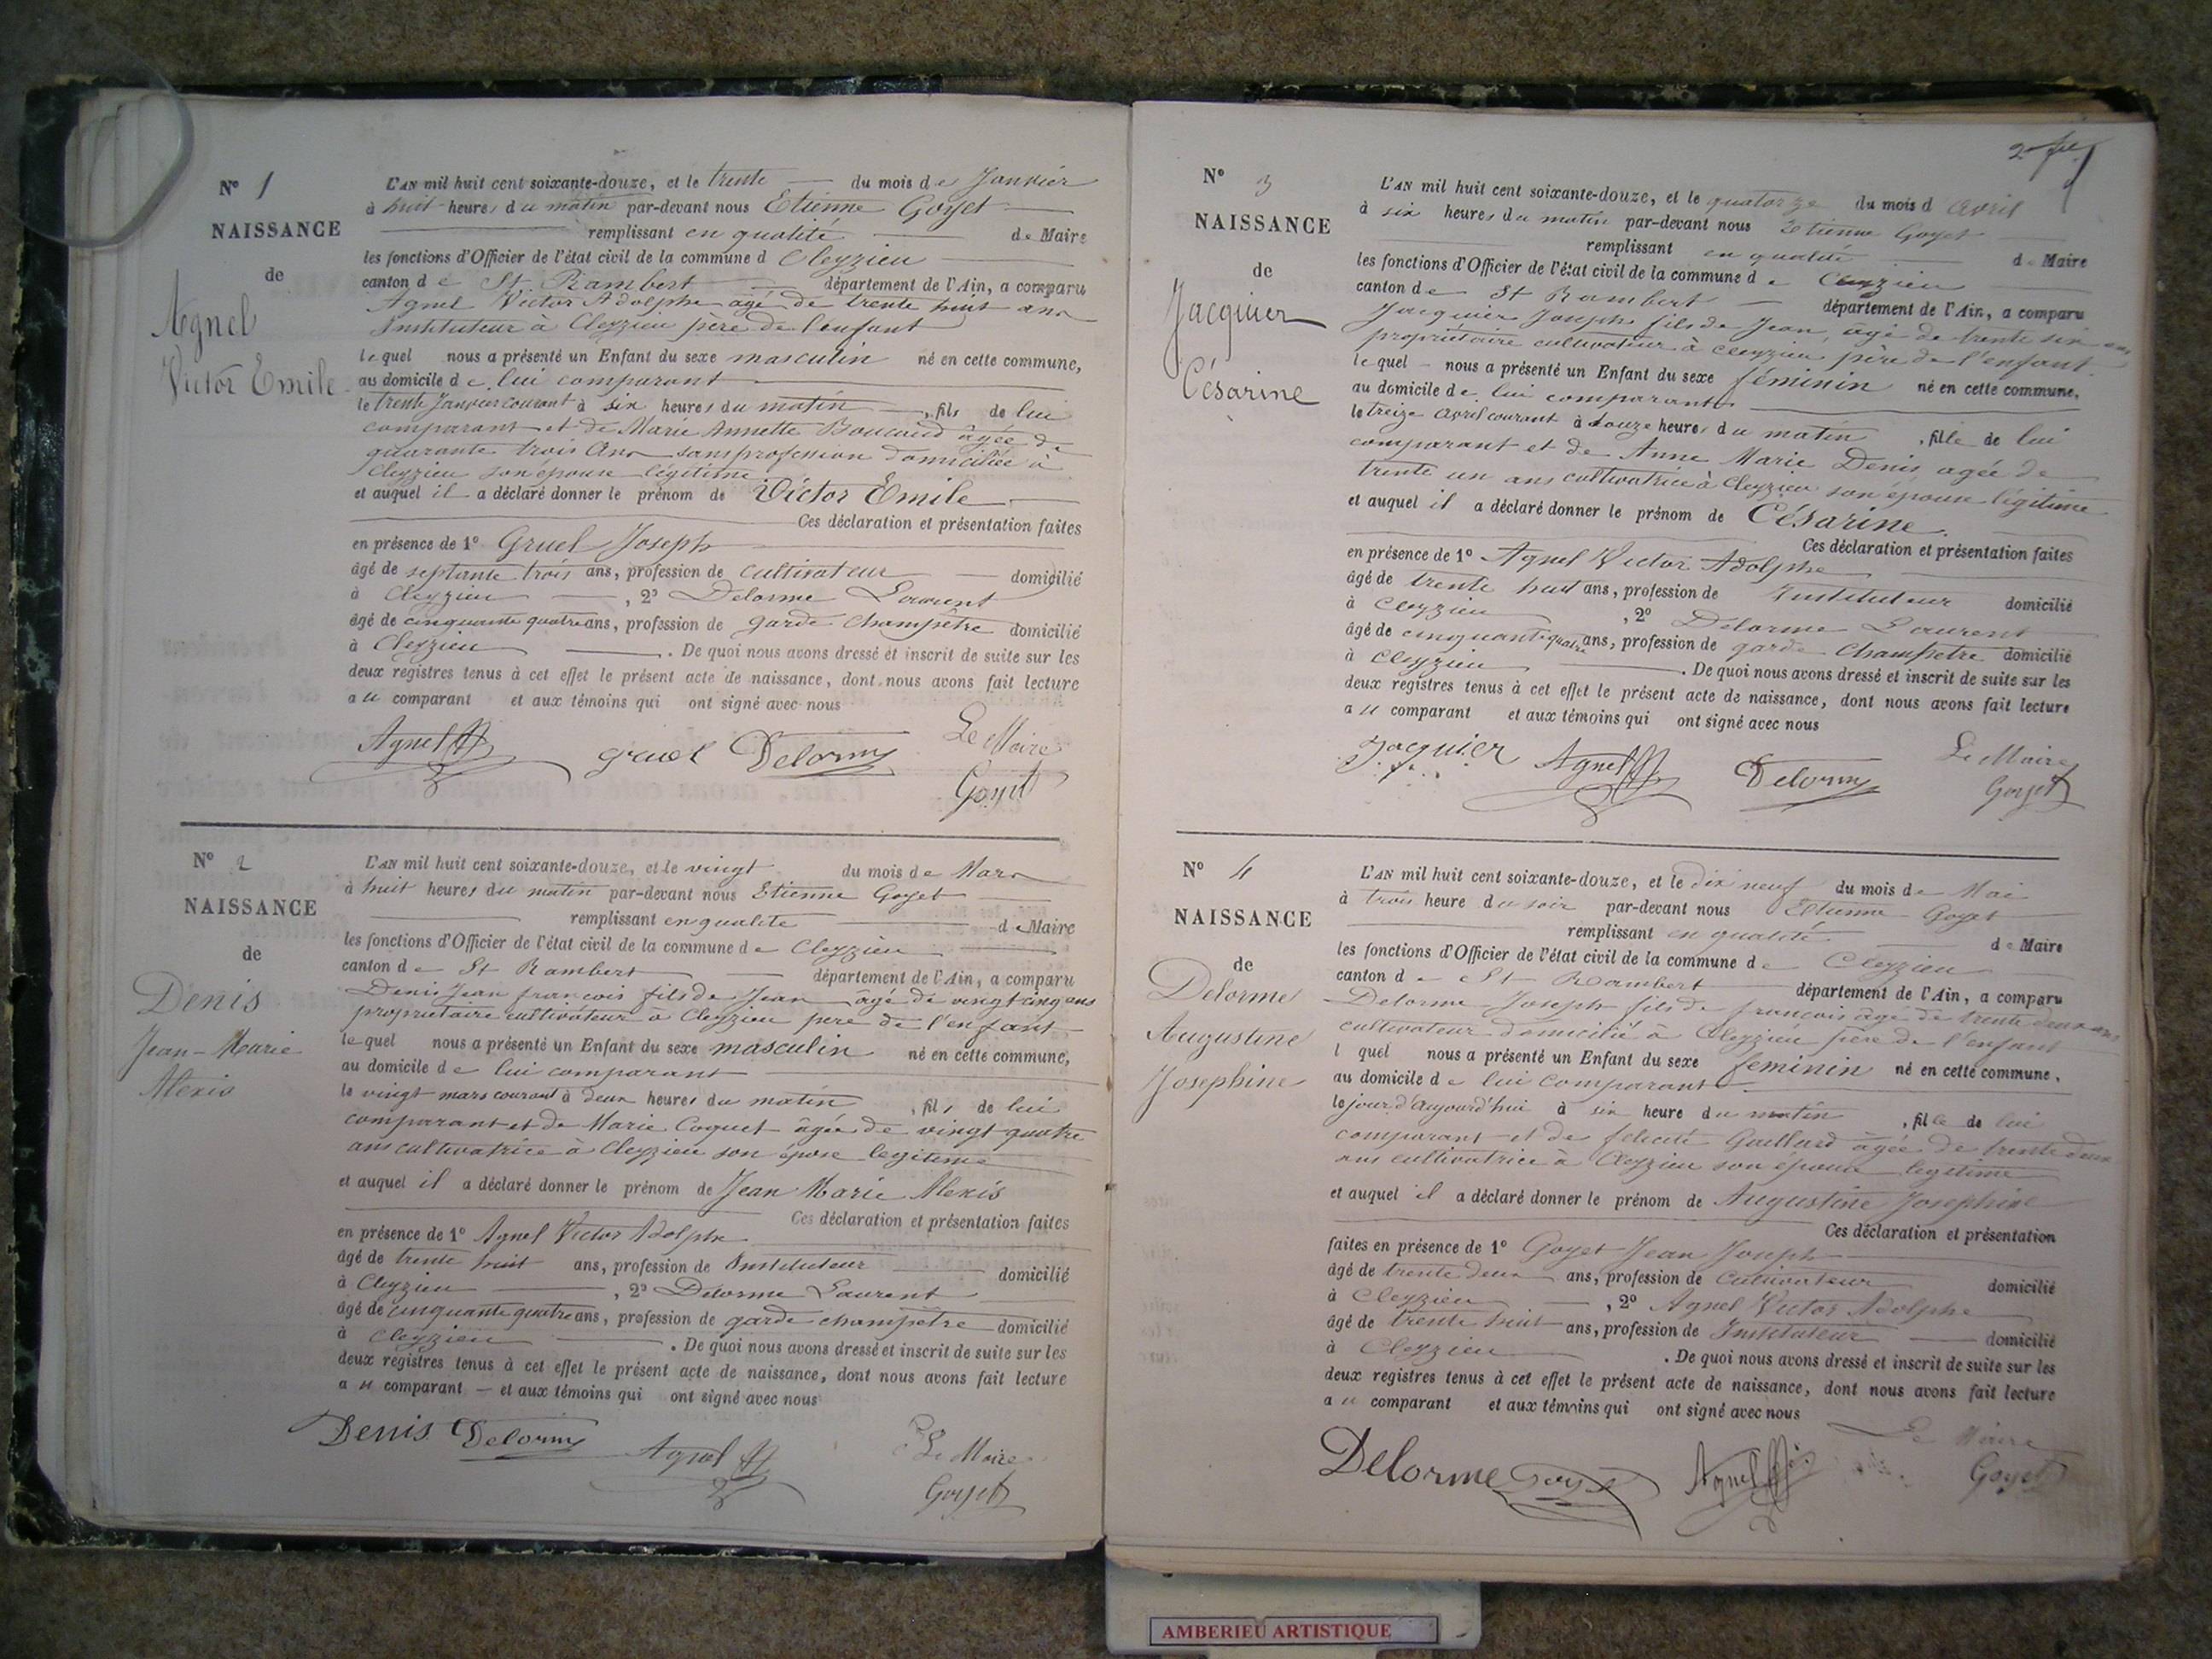 N° 1
NAISSANCE
de
Agnel
Victor Emile
L'AN mil huit cent soixante-douze, et le trente du mois de Janvier
à huit heures du matin par-devant nous Etienne Goyet
remplissant en qualité de Maire
les fonctions d'Officier de l'état civil de la commune d Cleyzieu
canton de St Rambert département de l'Ain, a comparu
Agnel Victor Adolphe agé de trente huit ans
Instituteur à Cleyzieu père de l'enfant
lequel nous a présenté un Enfant du sexe masculin né en cette commune,
au domicile de lui comparant
le trente Janvier courant à six heures du matin, fils de lui
comparant et de Marie Annette Boucaud âgée de
quarante trois Ans sans profession domiciliée à
Cleyzieu son épouse légitime
et auquel il a déclaré donner le prénom de Victor Emile
Ces déclaration et présentation faites
en présence de 1° Gruel Joseph
âgé de septante trois ans, profession de cultivateur domicilié
à Cleyzieu, 2° Delorme Laurent
âgé de cinquante quatre ans, profession de garde champêtre domicilié
à Cleyzieu. De quoi nous avons dressé et inscrit de suite sur les
deux registres tenus à cet effet le présent acte de naissance, dont nous avons fait lecture
au comparant et aux témoins qui ont signé avec nous
Agnel gruel Delorme Le Maire
Goyet
N° 2
NAISSANCE
de
Denis
Jean-Marie
Alexis
L'AN mil huit cent soixante-douze, et le vingt du mois de Mars
à huit heures du matin par-devant nous Etienne Goyet
remplissant en qualité de Maire
les fonctions d'Officier de l'état civil de la commune de Cleyzieu
canton de St Rambert département de l'Ain, a comparu
Denis Jean françois fils de Jean âgé de vingt cinq ans
propriétaire cultivateur à Cleyzieu père de l'enfant
lequel nous a présenté un Enfant du sexe masculin né en cette commune,
au domicile de lui comparant
le vingt mars courant à deux heures du matin, fils de lui
comparant et de Marie Coquet âgée de vingt quatre
ans cultivatrice à Cleyzieu son épose legitime
et auquel il a déclaré donner le prénom de Jean Marie Alexis
Ces déclaration et présentation faites
en présence de 1° Agnel Victor Adolphe
âgé de trente huit ans, profession de Instituteur domicilié
à Cleyzieu, 2° Delorme Laurent
âgé de cinquante quatre ans, profession de garde champêtre domicilié
à Cleyzieu. De quoi nous avons dressé et inscrit de suite sur les
deux registres tenus à cet effet le présent acte de naissance, dont nous avons fait lecture
au comparant et aux témoins qui ont signé avec nous
Denis Delorme Agnel Le Maire
Goyet
N° 3
NAISSANCE
de
Jacquier
Césarine
L'AN mil huit cent soixante-douze, et le quatorze du mois d avril
à six heures du matin par-devant nous Etienne Goyet
remplissant en qualité de Maire
les fonctions d'Officier de l'état civil de la commune de Cleyzieu
canton de St Rambert département de l'Ain, a comparu
Jacquier Joseph fils de Jean, âgé de trente six ans
propriétaire cultivateur à Cleyzieu père de l'enfant
lequel nous a présenté un Enfant du sexe féminin né en cette commune,
au domicile de lui comparant
le treize avril courant à douze heures du matin, fille de lui
comparant et de Anne Marie Denis agée de
trente un ans cultivatrice à Cleyzieu son épouse légitime
et auquel il a déclaré donner le prénom de Césarine
Ces déclaration et présentation faites
en présence de 1° Agnel Victor Adolphe
âgé de trente huit ans, profession de Instituteur domicilié
à Cleyzieu, 2° Delorme Laurent
âgé de cinquante quatre ans, profession de garde Champetre domicilié
à Cleyzieu. De quoi nous avons dressé et inscrit de suite sur les
deux registres tenus à cet effet le présent acte de naissance, dont nous avons fait lecture
au comparant et aux témoins qui ont signé avec nous
Jacquier Agnel Delorme Le Maire
Goyet
N° 4
NAISSANCE
de
Delorme
Augustine
Josephine
L'AN mil huit cent soixante-douze, et le dix neuf du mois de Mai
à trois heure du soir par-devant nous Etienne Goyet
remplissant en qualité de Maire
les fonctions d'Officier de l'état civil de la commune de Cleyzieu
canton de St Rambert département de l'Ain, a comparu
Delorme Joseph fils de françois âgé de trente deux ans
cultivateur domicilié à Cleyzieu père de l'enfant
l quel nous a présenté un Enfant du sexe feminin né en cette commune,
au domicile de lui comparant
le jour d'aujourd'hui à six heure du matin, fille de lui
comparant et de félicité Gaillard âgée de trente deux
ans cultivatrice à Cleyzieu son épouse legitime
et auquel il a déclaré donner le prénom de Augustine Josephine
Ces déclaration et présentation
faites en présence de 1° Goyet Jean Joseph
âgé de trente deux ans, profession de Cultivateur domicilié
à Cleyzieu, 2° Agnel Victor Adolphe
âgé de trente huit ans, profession de Instituteur domicilié
à Cleyzieu. De quoi nous avons dressé et inscrit de suite sur les
deux registres tenus à cet effet le présent acte de naissance, dont nous avons fait lecture
au comparant et aux témoins qui ont signé avec nous
Delorme Goyet Agnel Le Maire
Goyet
AMBERIEU ARTISTIQUE